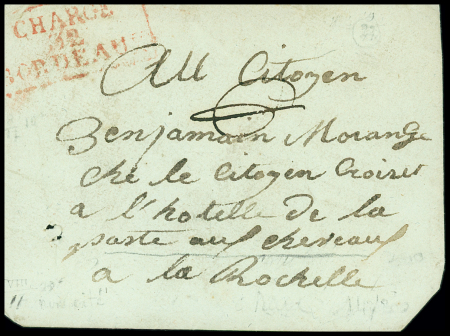 CHARGÉ
32
BORDEAUX
Au Citoyen
Benjamain Morange
ché le Citoyen Croizet
a l'hotelle de la
poste aux cheveaux
a la Rochelle